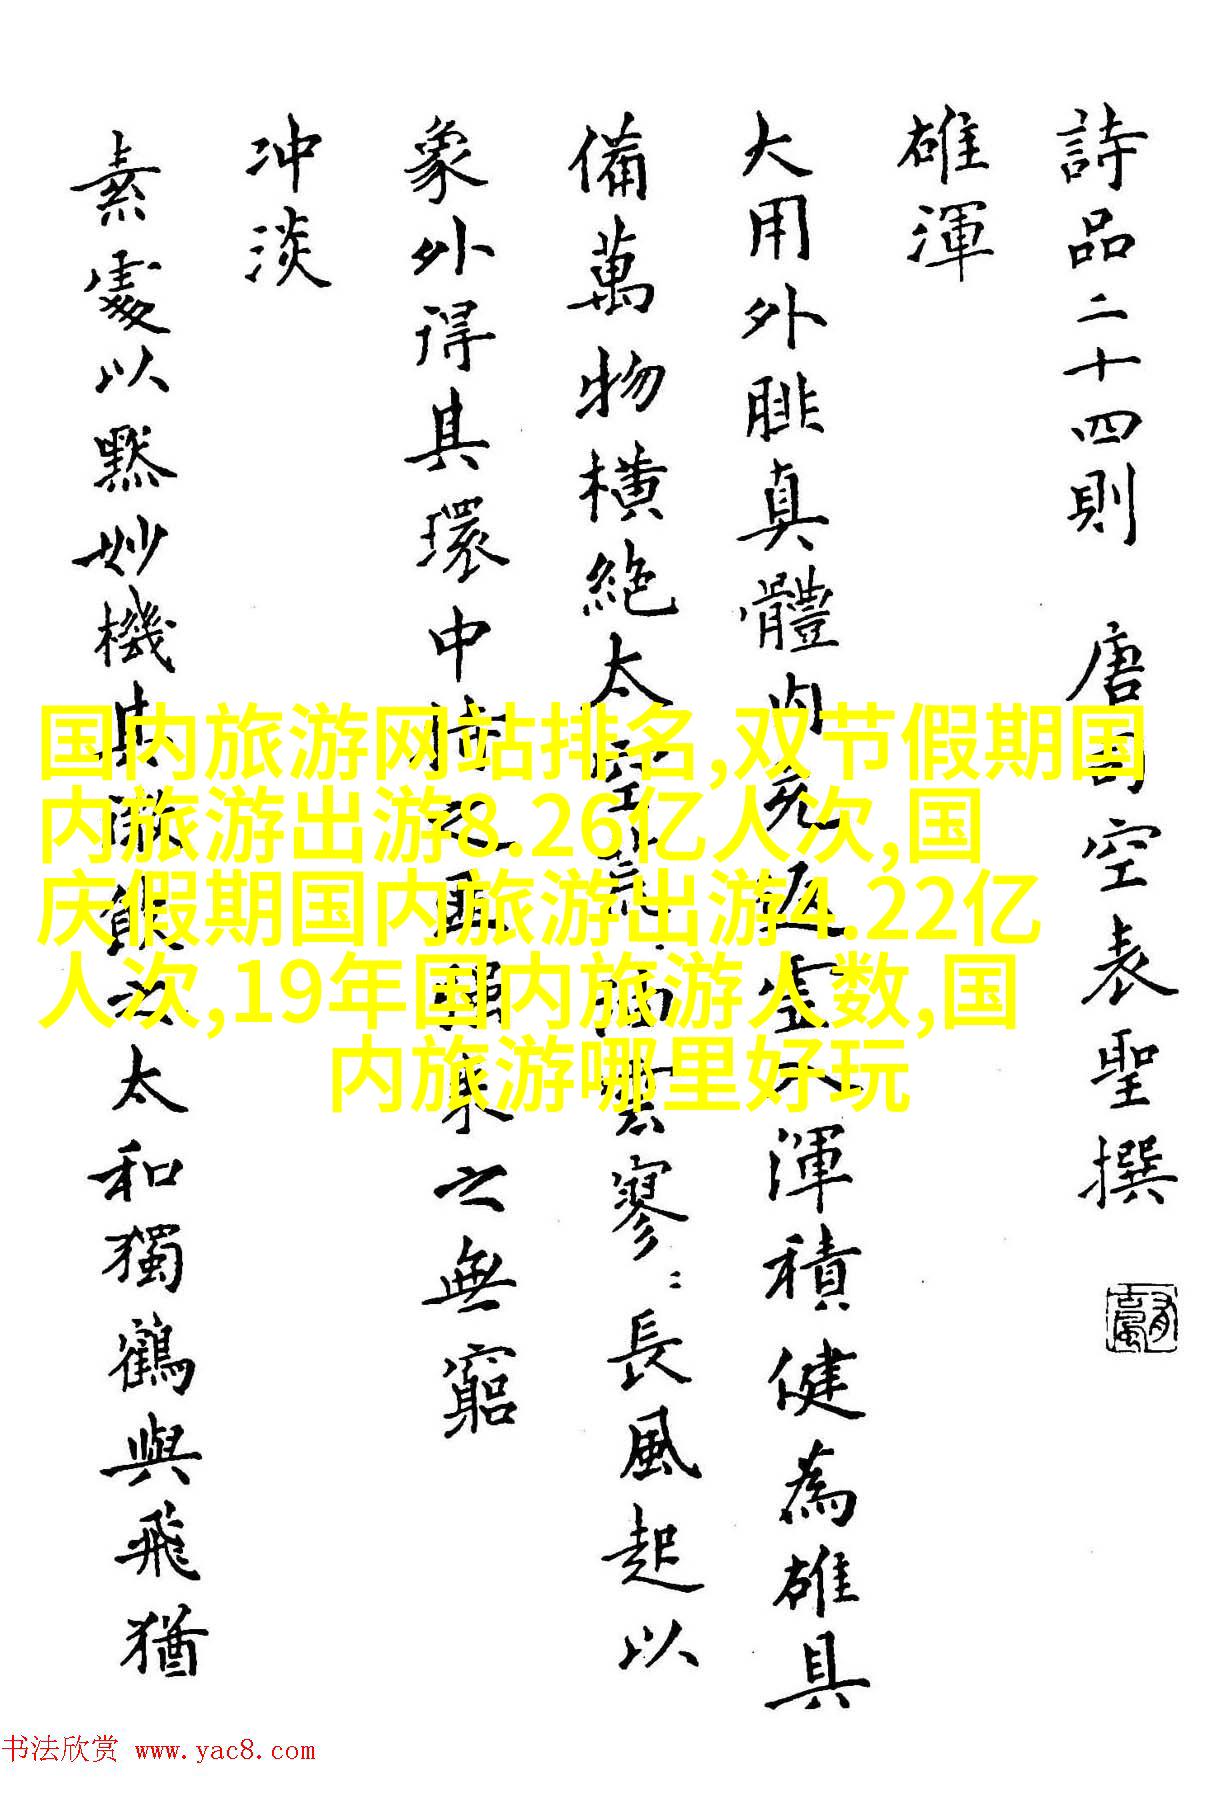 詩品二十四則 唐司空表聖撰
雄渾
大用外腓真體内充返虚入渾積健為雄具
備萬物横絶太空荒〻油雲寥〻長風起以
象外得其環中持之匪強来之無窮
冲淡
素處以黙妙機其微飲之太和獨鶴與飛猶
国内旅游网站排名,双节假期国
内旅游出游8.26亿人次,国
庆假期国内旅游出游4.22亿
人次,19年国内旅游人数,国
内旅游哪里好玩
书法欣赏 www.yac8.com